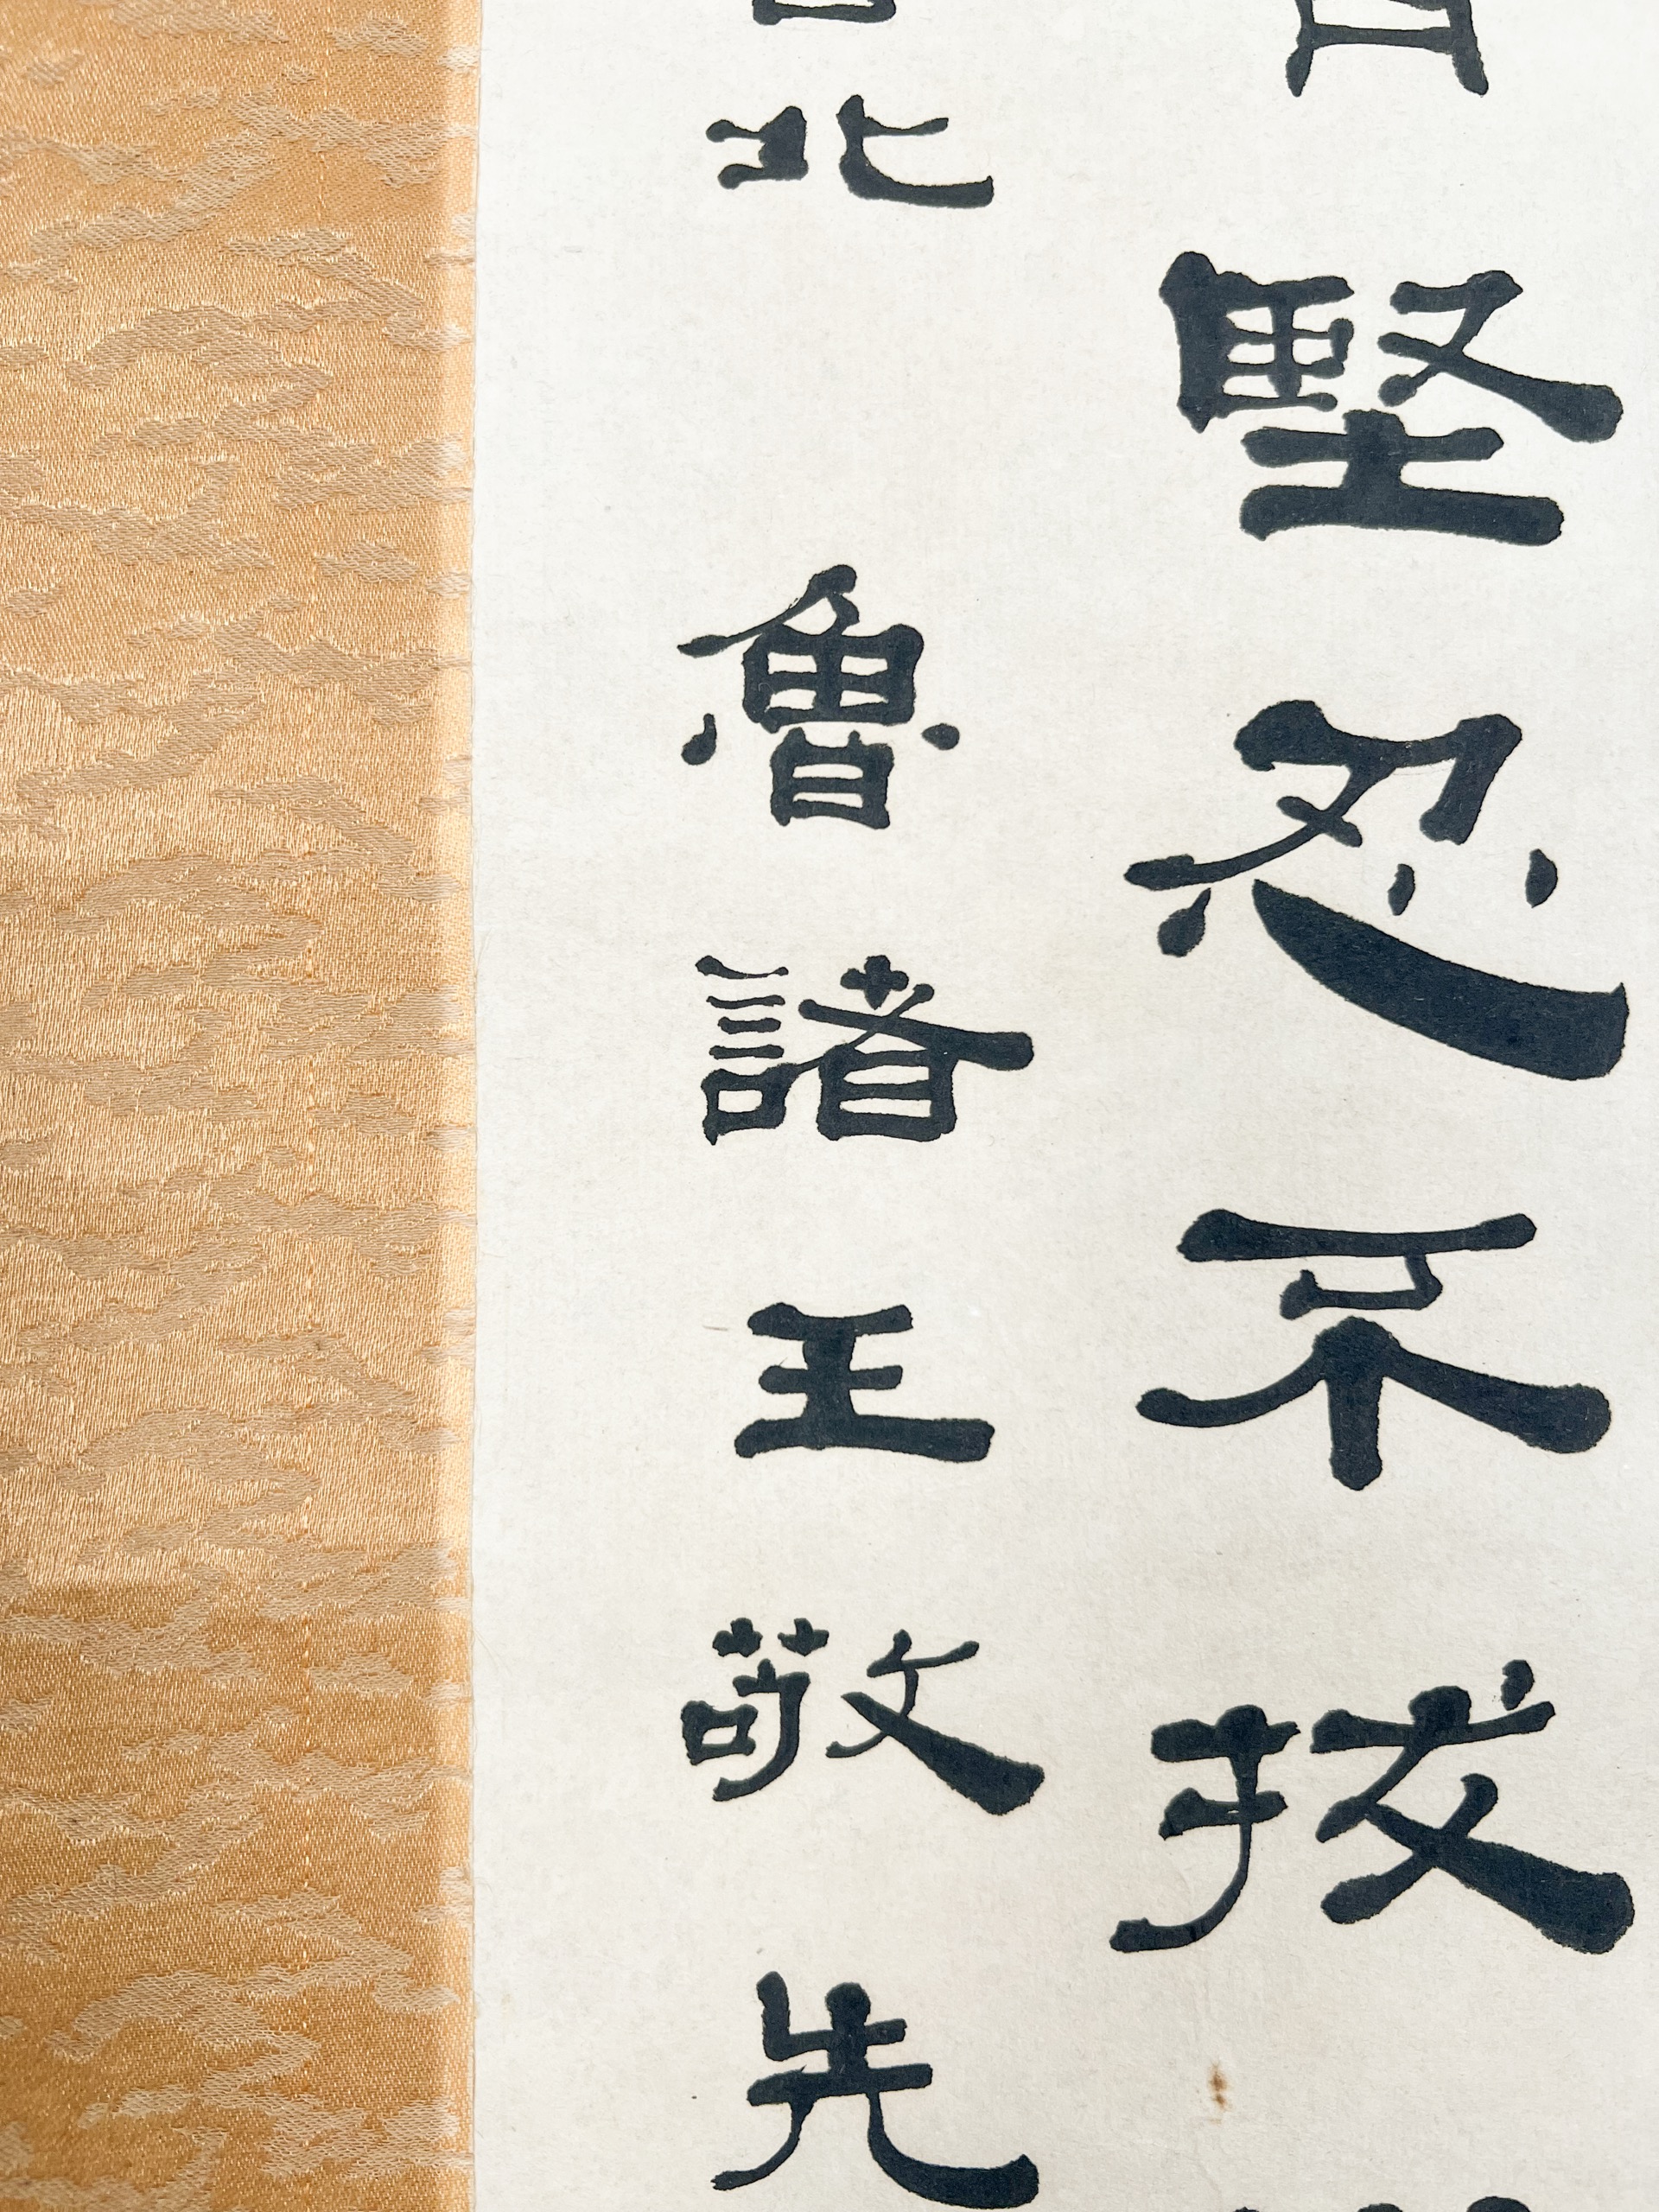 堅忍不拔
北 魯諸王敬先